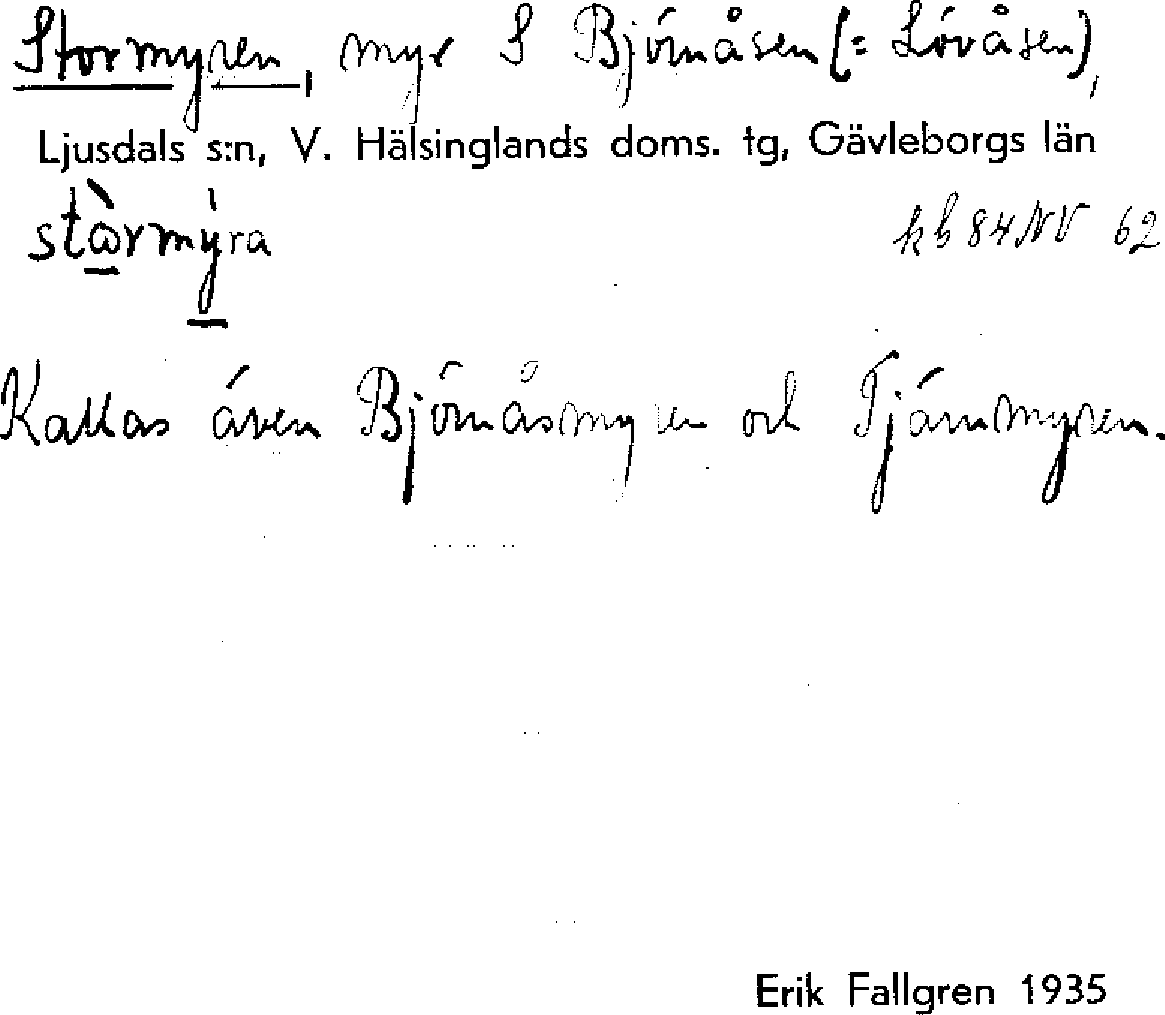 Stormyren, myr S Björnåsen (= Lövåsen),
Ljusdals s:n, V. Hälsinglands doms. tg, Gävleborgs län
stòrmýra
hb 84 NV 62
Kallas även Björnåsmyren och Tjärnmyren.
Erik Fallgren 1935